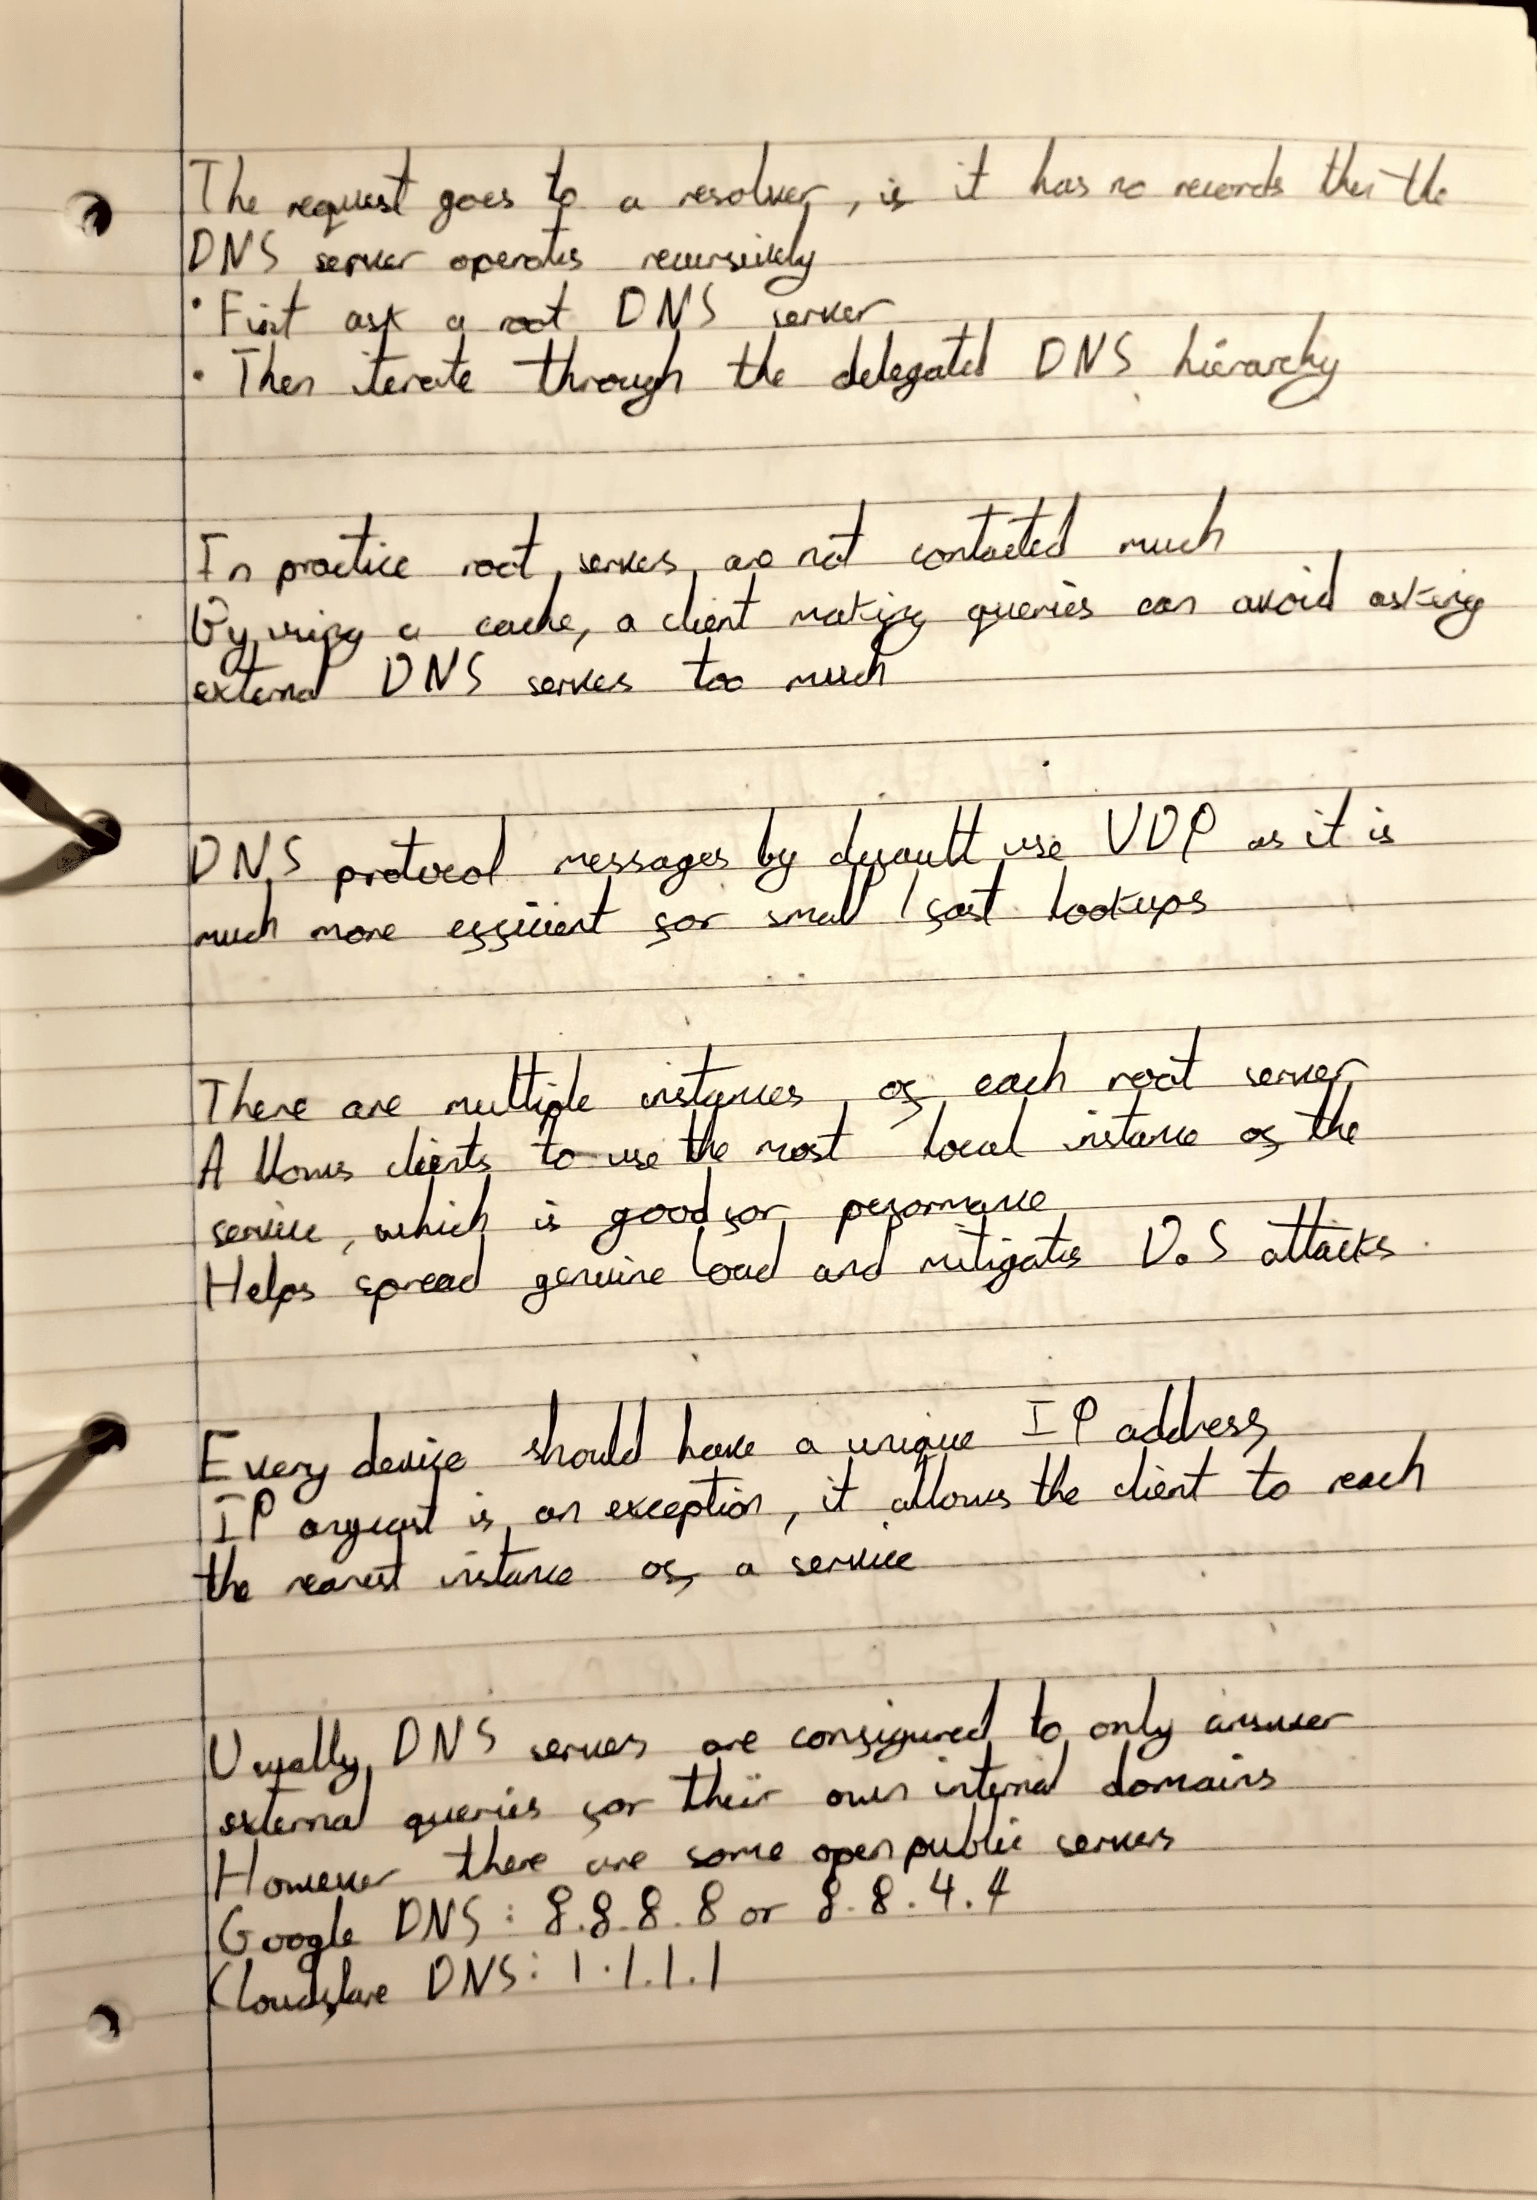 The request goes to a resolver, if it has no records then the
DNS server operates recursively
• First ask a root DNS server
• Then iterate through the delegated DNS hierarchy
In practice root servers are not contacted much
By using a cache, a client making queries can avoid asking
external DNS servers too much
DNS protocol messages by default use UDP as it is
much more efficient for small / fast lookups
There are multiple instances of each root server
Allows clients to use the most local instance of the
service, which is good for peformance
Helps spread genuine load and mitigates DoS attacks
Every device should have a unique IP address
IP anycast is an exception, it allows the client to reach
the nearest instance of a service
Usually DNS servers are configured to only answer
external queries for their own internal domains
However there are some open public servers
Google DNS: 8.8.8.8 or 8.8.4.4
Cloudflare DNS: 1.1.1.1